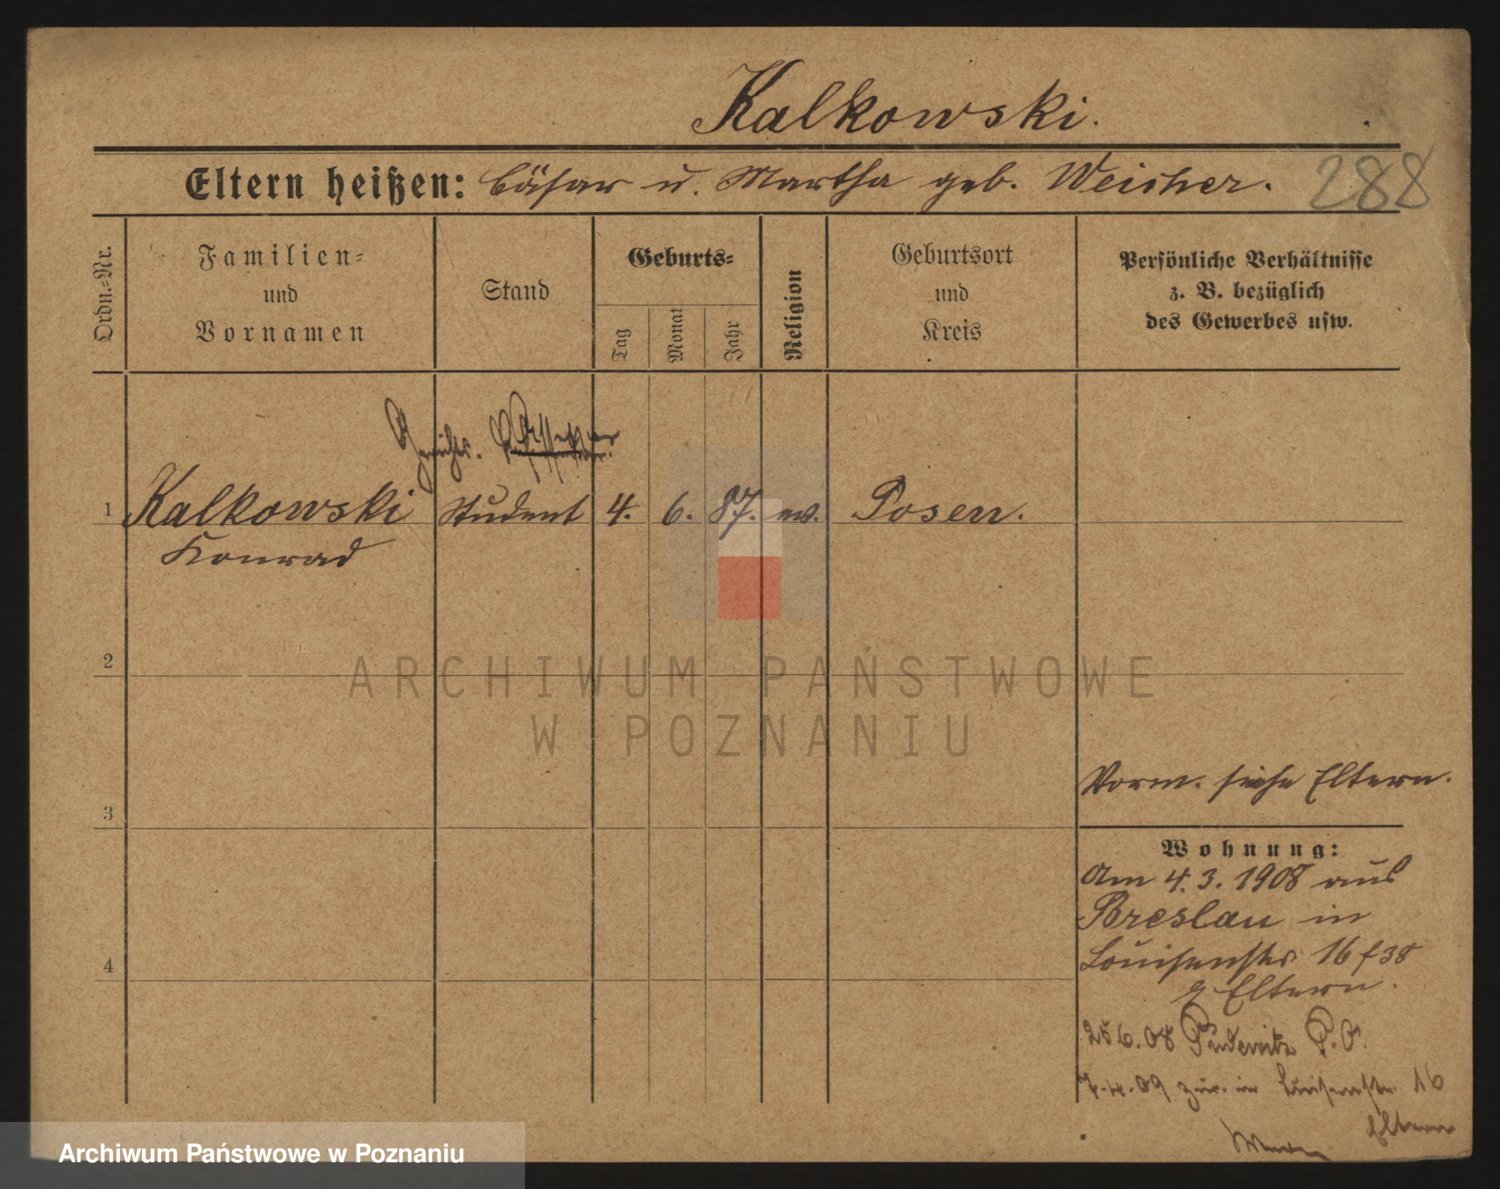 Kalkowski.
Eltern heißen: Cäsar u. Martha geb. Weicher.
288
Ordn.=Nr.
Familien=
und
Vornamen
Stand
Geburts=
Tag
Monat
Jahr
Religion
Geburtsort
und
Kreis
Persönliche Verhältnisse
z. B. bezüglich
des Gewerbes usw.
Gerichts.
1 Kalkowski Student 4. 6. 87. ev. Posen.
Konrad
2
ARCHIWUM PAŃSTWOWE
W POZNANIU
Vorm. siehe Eltern.
3
Wohnung:
Am 4.3.1908 aus
Breslau in
Louisenstr 16
4
Eltern.
25 6.08 Pudewitz P.O.
7.4.09 zur. in Luisenstr. 16
Eltern
Archiwum Państwowe w Poznaniu